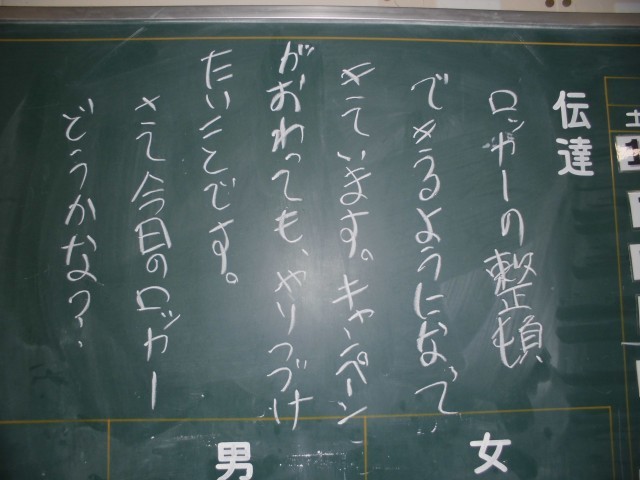 伝達
ロッカーの整頓
できるようになって
きています。キャンペーン
がおわっても、やりつづけ
たいことです。
さて今日のロッカー
どうかな？
土
女
男